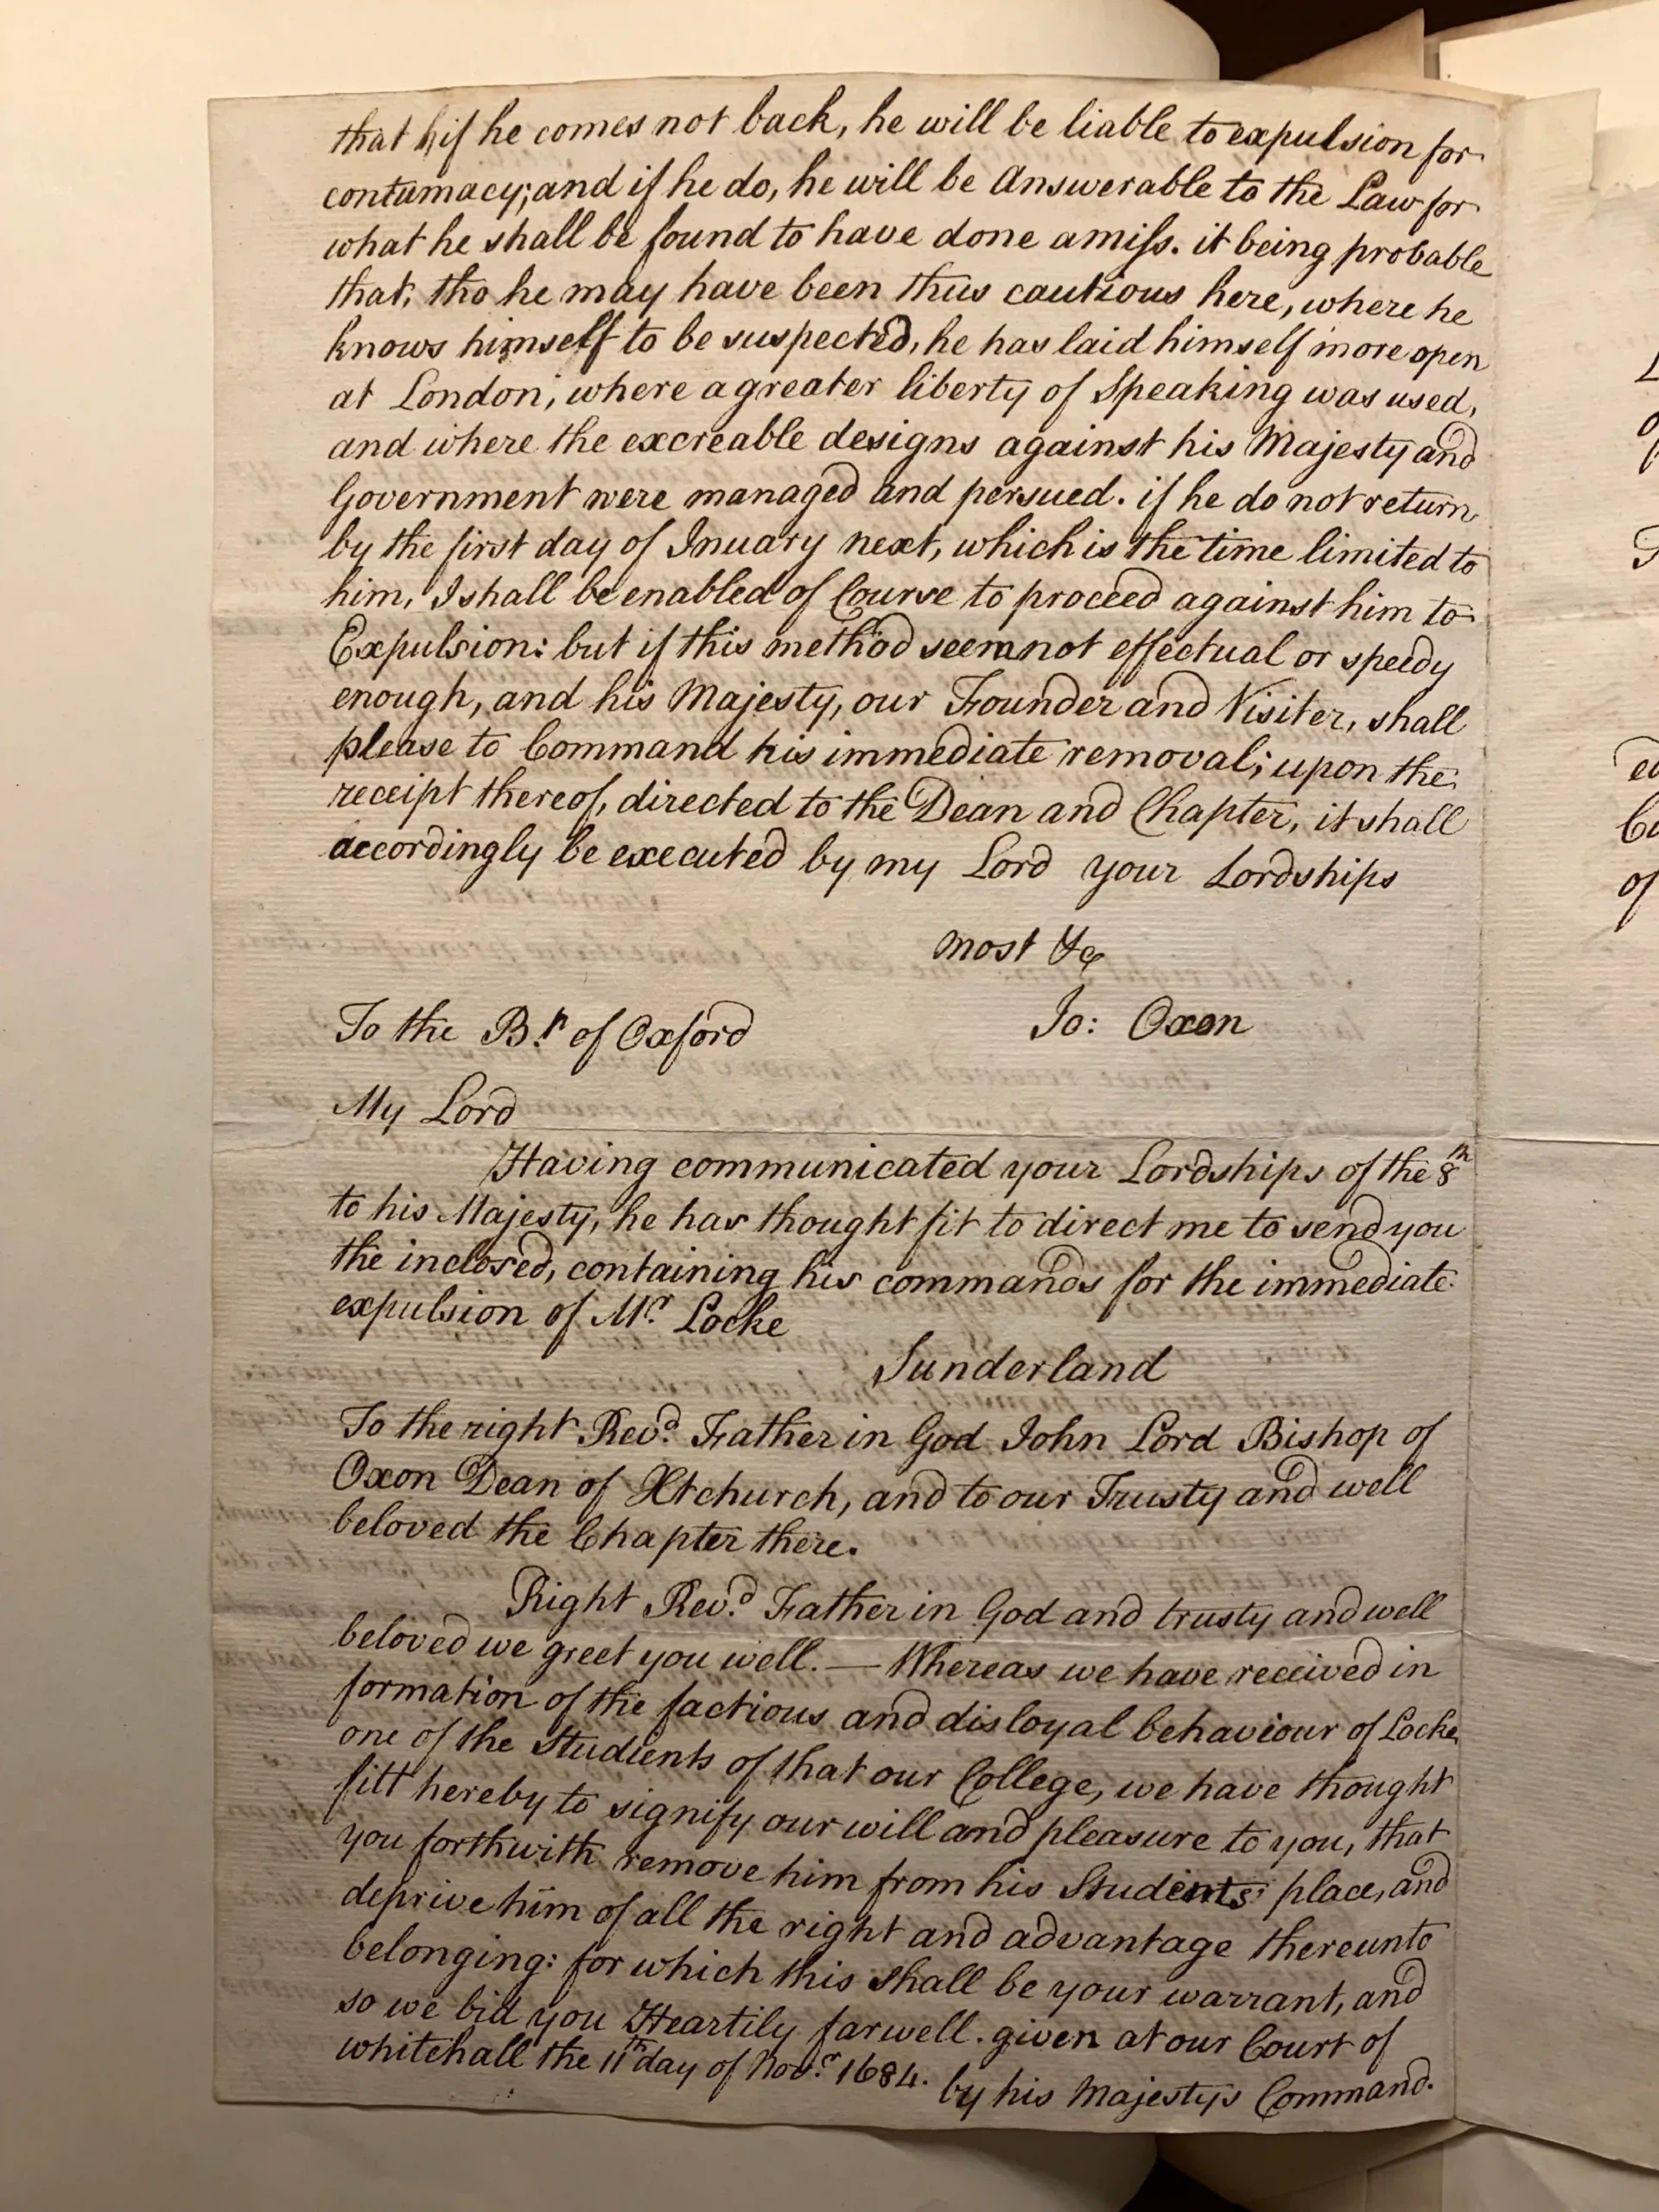 that if he comes not back, he will be liable to expulsion for
contumacy; and if he do, he will be Answerable to the Law for
what he shall be found to have done amiss. it being probable
that, tho he may have been thus cautious here, where he
knows himself to be suspected, he has laid himself more open
at London, where a greater liberty of Speaking was used,
and where the excreable designs against his Majesty and
Government were managed and persued. if he do not return
by the first day of Inuary next, which is the time limited to
him, I shall be enabled of Course to proceed against him to
Expulsion: but if this method seem not effectual or speedy
enough, and his Majesty, our Founder and Visiter, shall
please to Command his immediate removal; upon the
receipt thereof, directed to the Dean and Chapter, it shall
accordingly be executed by my Lord your Lordships
most &c
Jo: Oxon
To the Bp of Oxford
My Lord
Having communicated your Lordships of the 8th
to his Majesty, he has thought fit to direct me to send you
the inclosed, containing his commands for the immediate
expulsion of Mr. Locke
Sunderland
To the right Revd. Father in God John Lord Bishop of
Oxon Dean of Xtchurch, and to our Trusty and well
beloved the Chapter there.
Right Revd. Father in God and trusty and well
beloved we greet you well. — Whereas we have received in
formation of the factious and disloyal behaviour of Locke
one of the Students of that our College, we have thought
fitt hereby to signify our will and pleasure to you, that
you forthwith remove him from his Students place, and
deprive him of all the right and advantage thereunto
belonging: for which this shall be your warrant, and
so we bid you Heartily farwell. given at our Court of
whitehall the 11th day of Novr. 1684.
by his Majestys Command.